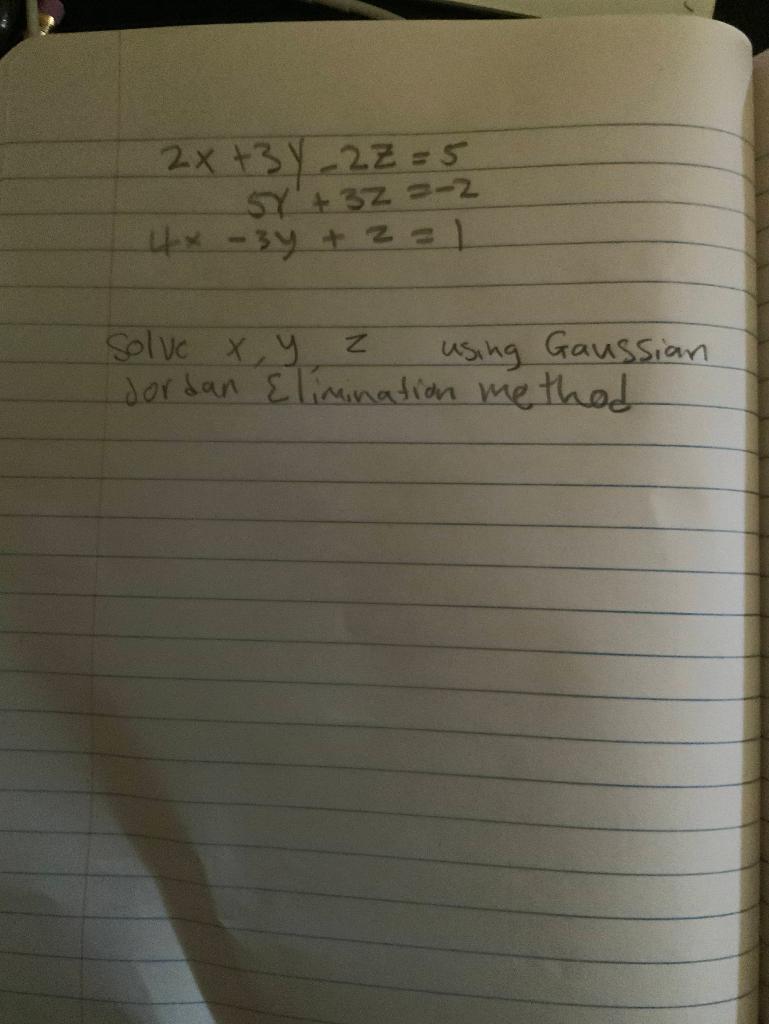 2x + 3y - 2z = 5
5y + 3z = -2
4x - 3y + z = 1
Solve x, y, z using Gaussian
Jordan Elimination method